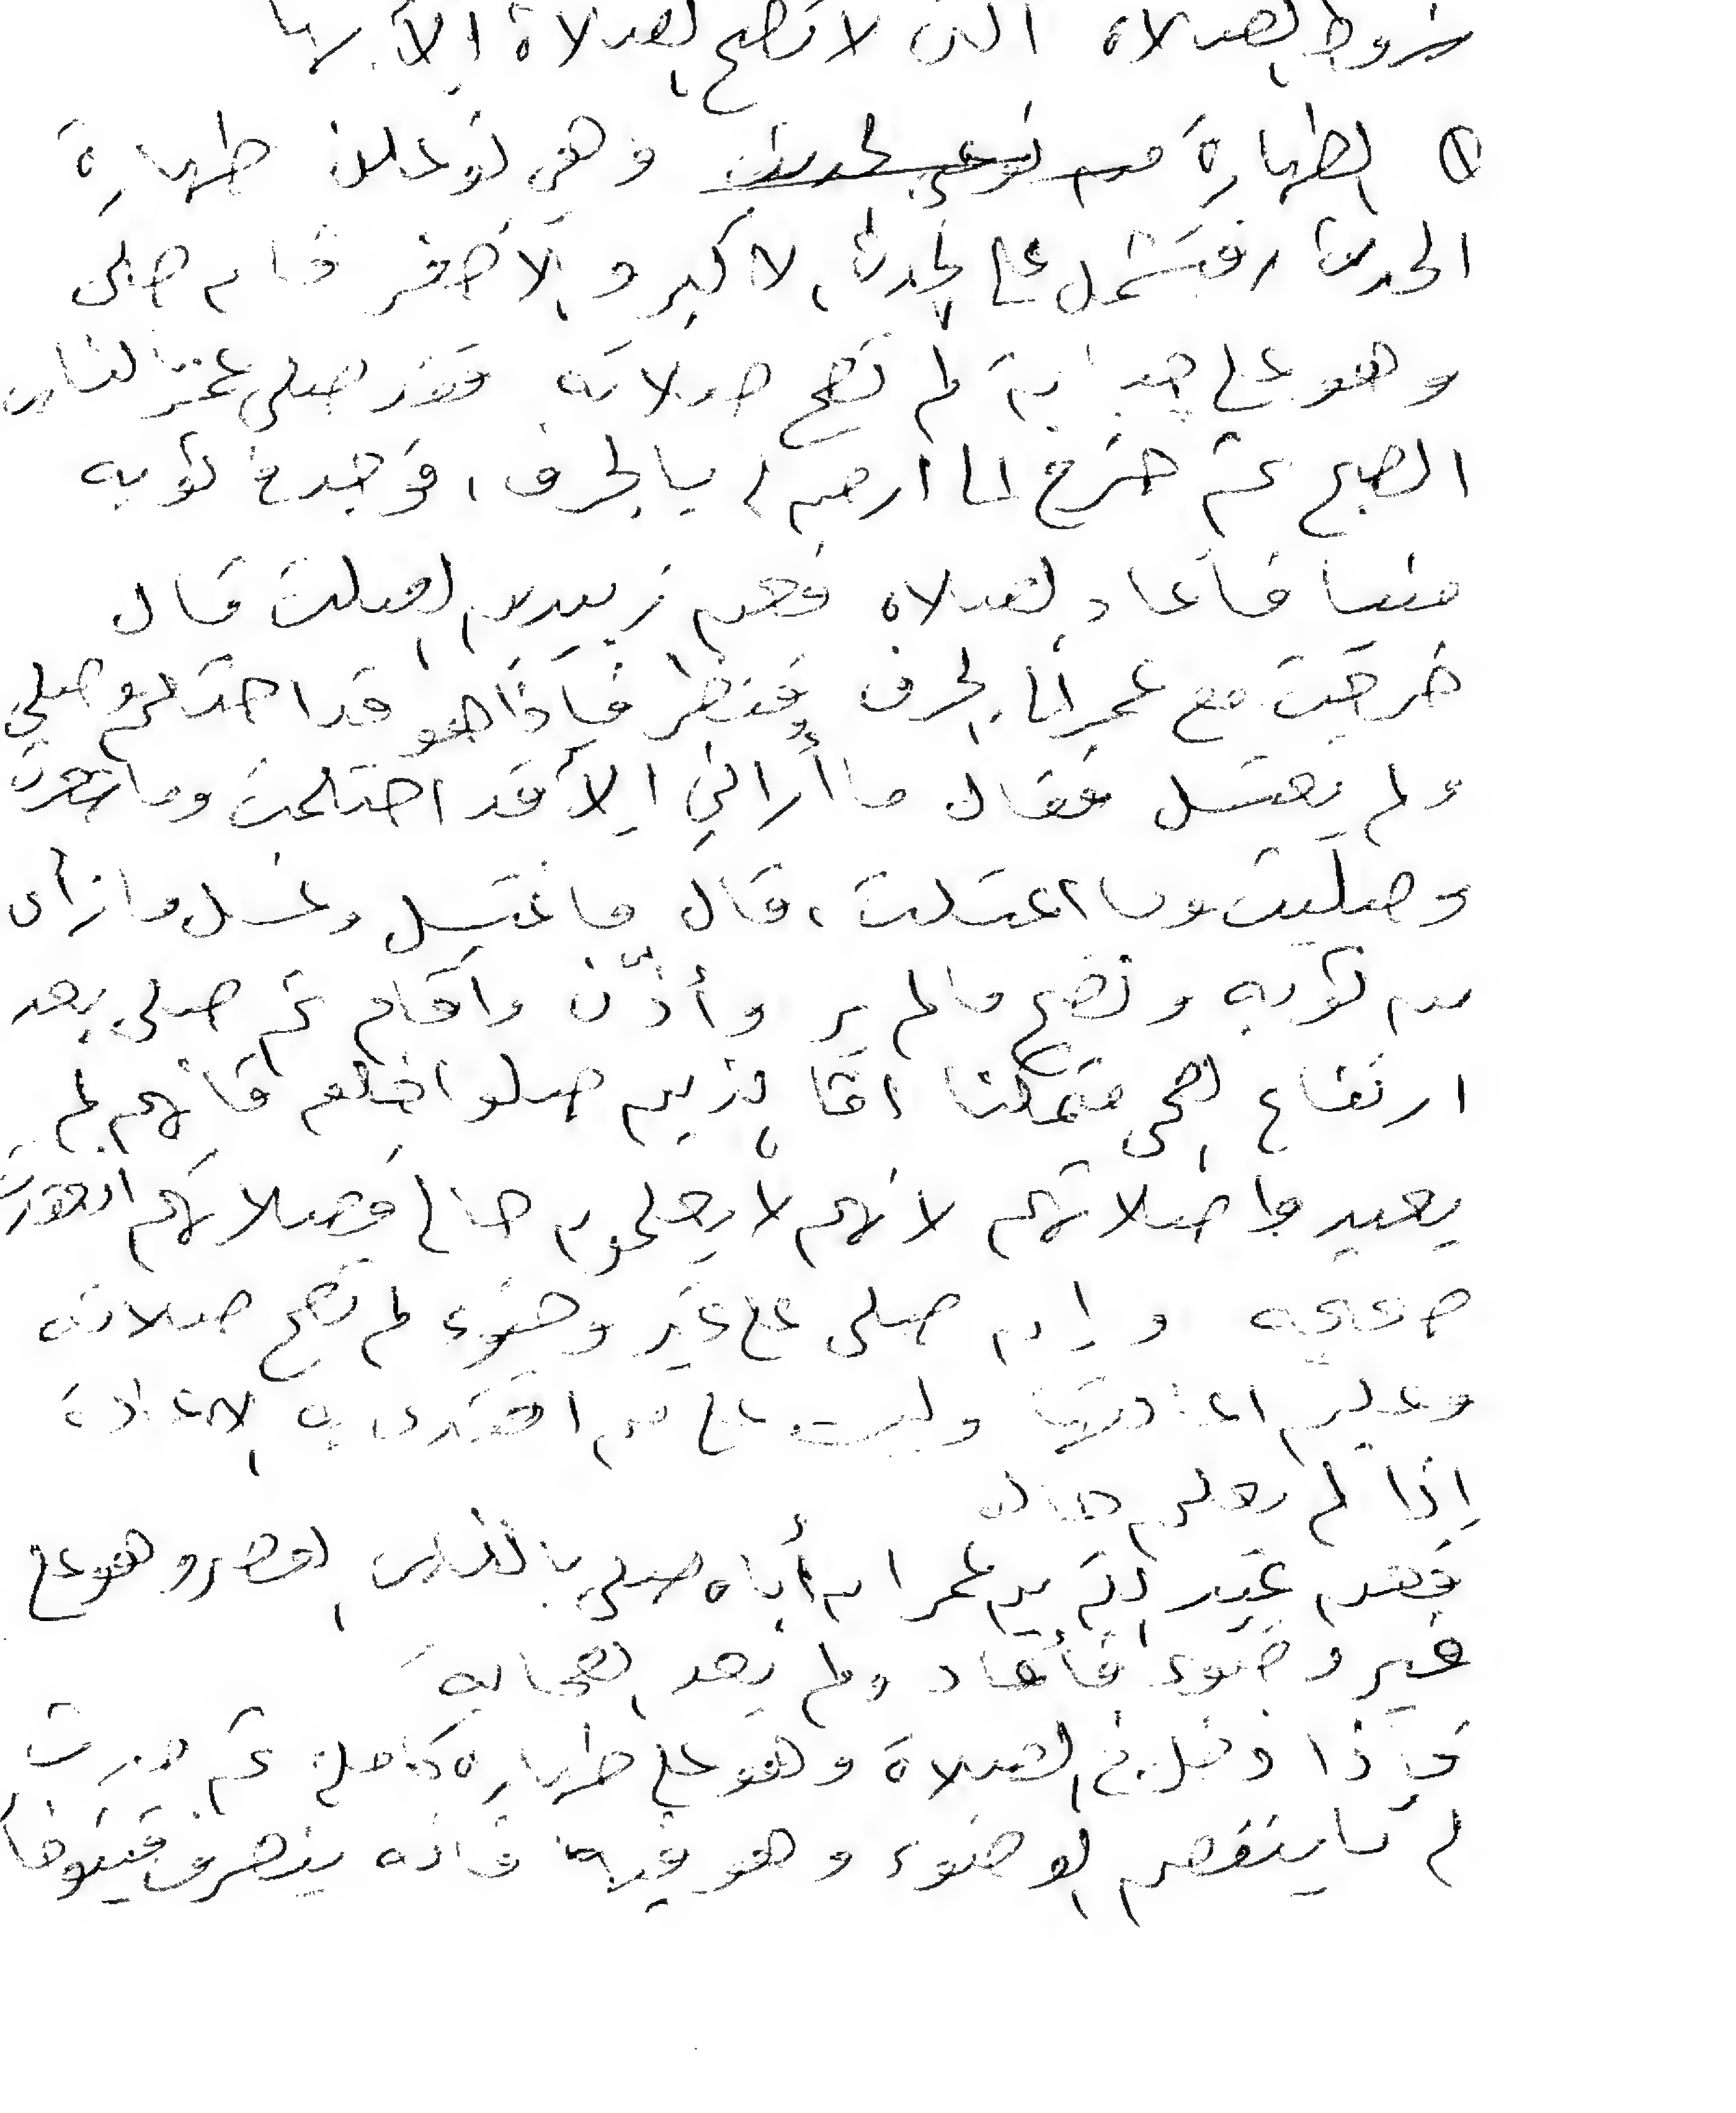 شروط الصلاة التي لا تصح الصلاة إلا بها
① الطهارة من نوعي الحدث وهي نوعان طهارة
الحدث، فتشمل على الحدث الاكبر و الأصغر فان صلى
وهو على جنابة لم تصح صلاته فقد صلى عمر بالناس
الصبح ثم خرج الى ارضه بالجرف، فوجد في ثوبه
منيا فأعاد الصلاة فعن زبيد بن الصلت قال
خرجت مع عمر الى الجرف فنظر فإذا هو قد احتلم وصلى
ولم يغتسل فقال ما أُراني إلا قد احتلمت وما شعرت
وصليت وما اغتسلت، قال فاغتسل وغسل ما رأى
من ثوبه ونضح ما لم ير وأذّن واقام ثم صلى بعد
ارتفاع الضحى متمكنا اما الذين صلوا خلفه فانهم لم
يعيدوا صلاتهم لانهم لا يعلمون حاله فصلاتهم انعقدت
صحيحه وإن صلى على غير وضوء لم تصح صلاته
وعليه اعادتها وليست على من اقتدى به الاعادة
إذا لم يعلم حاله
فعن عبيد الله بن عمر ان أباه صلى بالناس العصر وهو على
غير وضوء فأعاد ولم يعد الصحابة
فإذا دخل في الصلاة وهو على طهارة كاملة ثم حدث
له ما ينقض الوضوء وهو فيها فانه ينصرف فيتوضأ